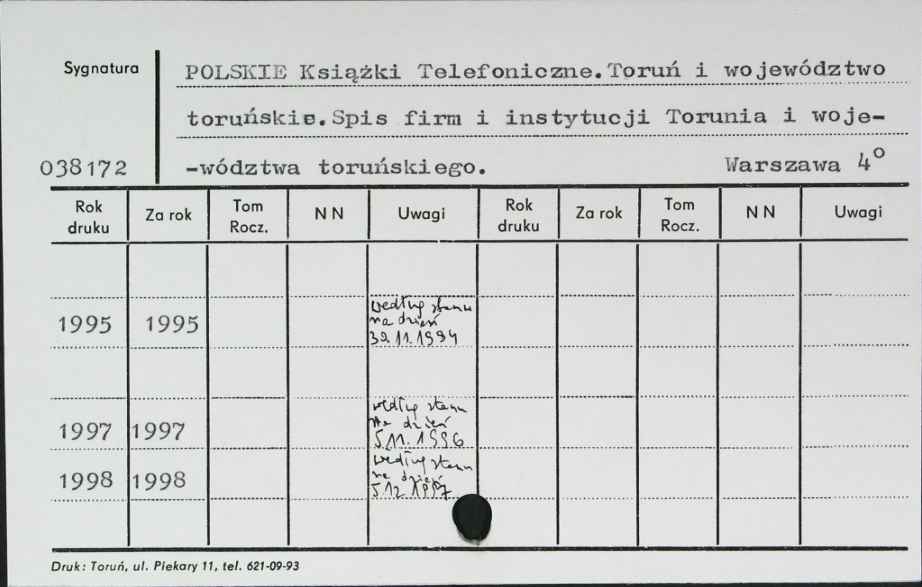 Sygnatura
POLSKIE Książki Telefoniczne.Toruń i województwo
toruńskie.Spis firm i instytucji Torunia i woje-
038172
-wództwa toruńskiego. Warszawa 4°
Rok druku Za rok Tom Rocz. NN Uwagi Rok druku Za rok Tom Rocz. NN Uwagi
według stanu
na dzień
1995 1995
30.11.1994
według stanu
na dzień
1997 1997
5.11.1996
według stanu
na dzień
1998 1998
5.12.1997
Druk: Toruń, ul. Piekary 11, tel. 621-09-93